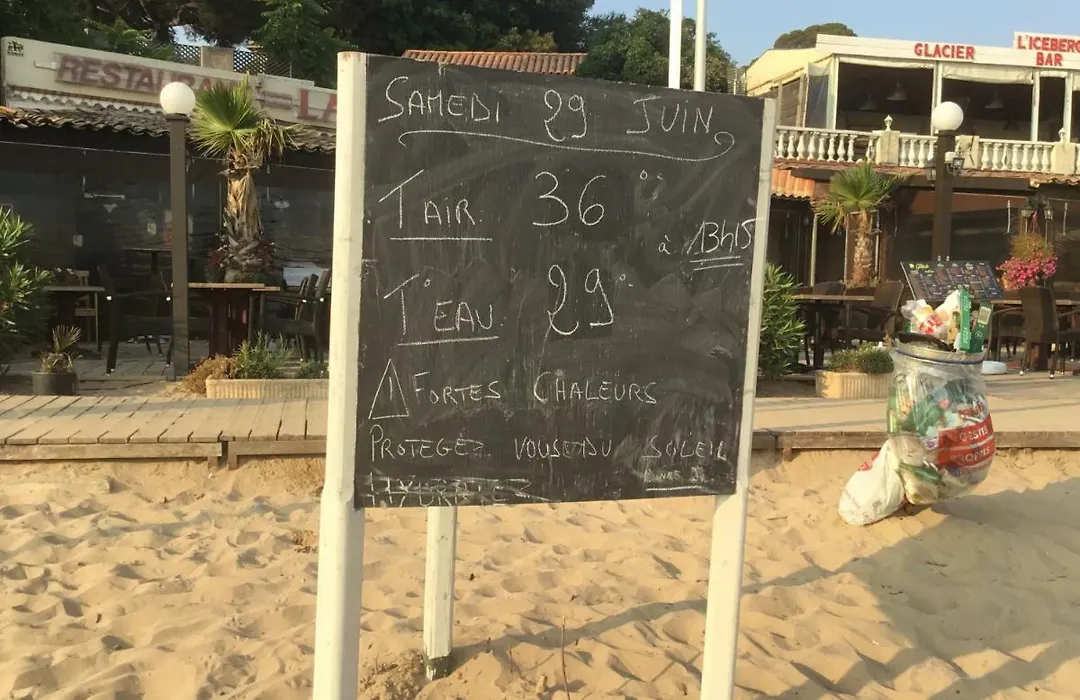 RESTAURANT LA
GLACIER
L'ICEBERG
BAR
SAMEDI 29 JUIN
T° AIR 36°
à 13h15
T° EAU 29°
⚠ FORTES CHALEURS
PROTEGEZ VOUS DU SOLEIL
GESTES
PROPRES